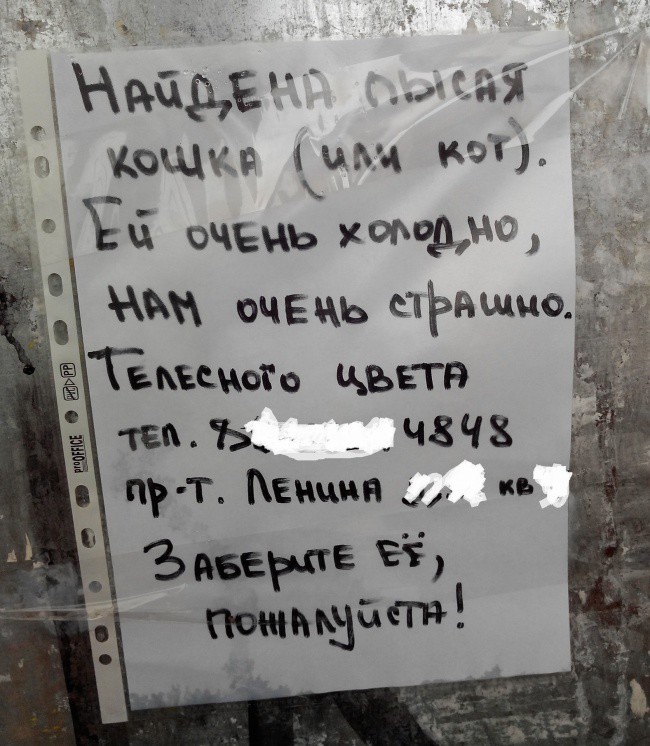 НАЙДЕНА ЛЫСАЯ
КОШКА (ИЛИ КОТ).
ЕЙ ОЧЕНЬ ХОЛОДНО,
НАМ ОЧЕНЬ СТРАШНО.
ТЕЛЕСНОГО ЦВЕТА
ТЕЛ. 8 4848
ПР-Т. ЛЕНИНА КВ
ЗАБЕРИТЕ ЕЁ,
ПОЖАЛУЙСТА!
PP
proOFFICE